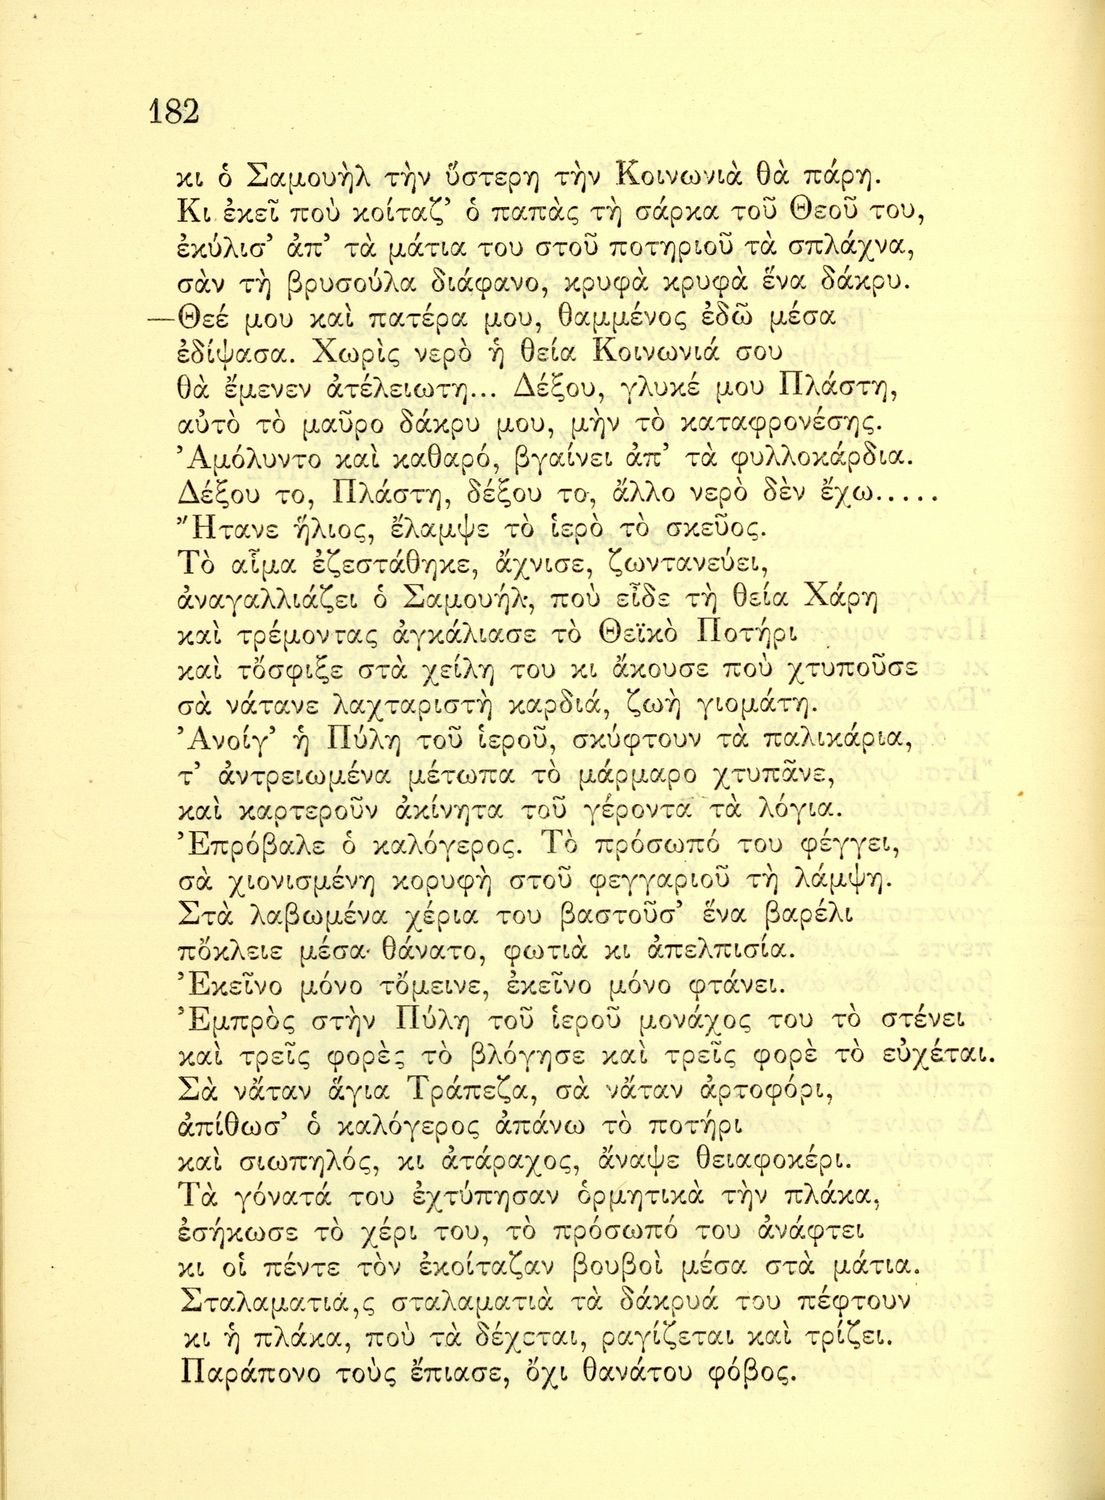 182
κι ὁ Σαμουὴλ τὴν ὕστερη τὴν Κοινωνιὰ θὰ πάρη.
Κι ἐκεῖ ποὺ κοίταζ᾽ ὁ παπὰς τὴ σάρκα τοῦ Θεοῦ του,
ἐκύλισ᾽ ἀπ᾽ τὰ μάτια του στοῦ ποτηριοῦ τὰ σπλάχνα,
σὰν τὴ βρυσούλα διάφανο, κρυφὰ κρυφὰ ἕνα δάκρυ.
—Θεέ μου καὶ πατέρα μου, θαμμένος ἐδῶ μέσα
ἐδίψασα. Χωρὶς νερὸ ἡ θεία Κοινωνιά σου
θὰ ἔμενεν ἀτέλειωτη... Δέξου, γλυκέ μου Πλάστη,
αὐτὸ τὸ μαῦρο δάκρυ μου, μὴν τὸ καταφρονέσης.
Ἀμόλυντο καὶ καθαρό, βγαίνει ἀπ᾽ τὰ φυλλοκάρδια.
Δέξου το, Πλάστη, δέξου το, ἄλλο νερὸ δὲν ἔχω.....
Ἤτανε ἥλιος, ἔλαμψε τὸ ἱερὸ τὸ σκεῦος.
Τὸ αἷμα ἐζεστάθηκε, ἄχνισε, ζωντανεύει,
ἀναγαλλιάζει ὁ Σαμουήλ, ποὺ εἶδε τὴ θεία Χάρη
καὶ τρέμοντας ἀγκάλιασε τὸ Θεϊκὸ Ποτήρι
καὶ τὄσφιξε στὰ χείλη του κι ἄκουσε ποὺ χτυποῦσε
σὰ νάτανε λαχταριστὴ καρδιά, ζωὴ γιομάτη.
Ἀνοίγ᾽ ἡ Πύλη τοῦ ἱεροῦ, σκύφτουν τὰ παλικάρια,
τ᾽ ἀντρειωμένα μέτωπα τὸ μάρμαρο χτυπᾶνε,
καὶ καρτεροῦν ἀκίνητα τοῦ γέροντα τὰ λόγια.
Ἐπρόβαλε ὁ καλόγερος. Τὸ πρόσωπό του φέγγει,
σὰ χιονισμένη κορυφὴ στοῦ φεγγαριοῦ τὴ λάμψη.
Στὰ λαβωμένα χέρια του βαστοῦσ᾽ ἕνα βαρέλι
πὄκλειε μέσα θάνατο, φωτιὰ κι ἀπελπισία.
Ἐκεῖνο μόνο τὄμεινε, ἐκεῖνο μόνο φτάνει.
Ἐμπρὸς στὴν Πύλη τοῦ ἱεροῦ μονάχος του τὸ στένει
καὶ τρεῖς φορὲς τὸ βλόγησε καὶ τρεῖς φορὲ τὸ εὐχέται.
Σὰ νἄταν ἅγια Τράπεζα, σὰ νἄταν ἀρτοφόρι,
ἀπίθωσ᾽ ὁ καλόγερος ἀπάνω τὸ ποτήρι
καὶ σιωπηλός, κι ἀτάραχος, ἄναψε θειαφοκέρι.
Τὰ γόνατά του ἐχτύπησαν ὁρμητικὰ τὴν πλάκα,
ἐσήκωσε τὸ χέρι του, τὸ πρόσωπό του ἀνάφτει
κι οἱ πέντε τὸν ἐκοίταζαν βουβοὶ μέσα στὰ μάτια.
Σταλαματιά,ς σταλαματιὰ τὰ δάκρυά του πέφτουν
κι ἡ πλάκα, ποὺ τὰ δέχεται, ραγίζεται καὶ τρίζει.
Παράπονο τοὺς ἔπιασε, ὄχι θανάτου φόβος.